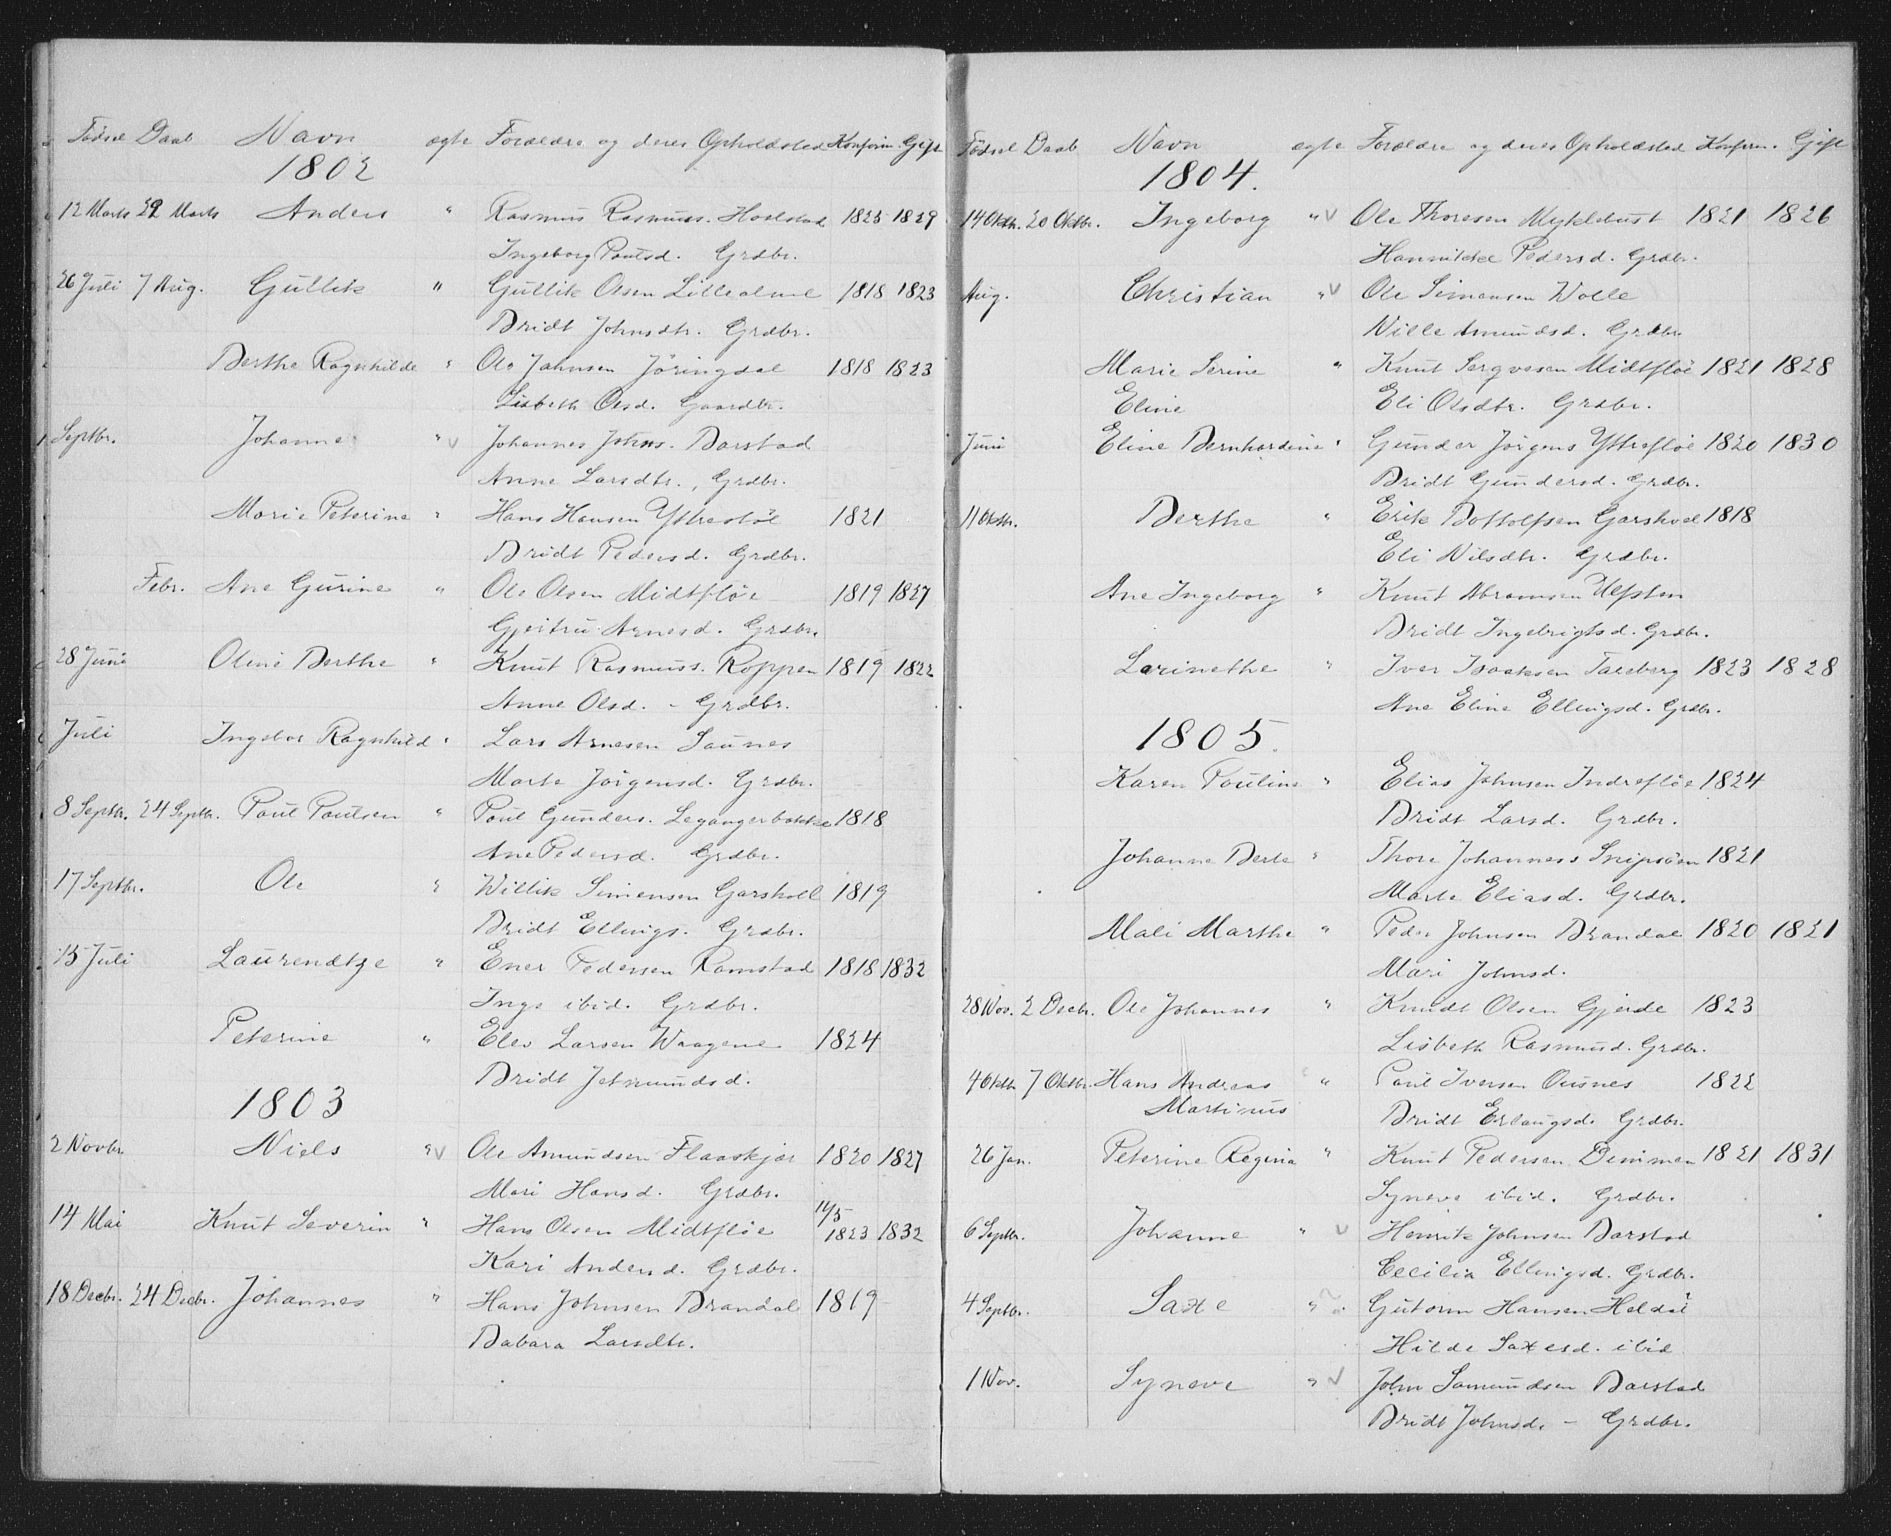 Fødsel Daab Navn ægte Forældre og deres Opholdsted Konfirm. Gift
1802
12 Marts 29 Marts Anders " Rasmus Rasmuss. 1825 1829
Ingeborg Poulsd. Grdbr.
26 Juli 7 Aug. Gullik " Gullik Olsen 1818 1823
Bridt Johnsdtr. Grdbr.
Berthe Ragnhilde " Ole Johnsen Jøringdal 1818 1823
Lisbeth Olsd. Gaardbr.
Septbr. Johanne " v Johannes Johns. Barstad
Anne Larsdtr., Grdbr.
Marie Peterine " Hans Hansen Yttrefløe 1821
Bridt Pedersd. Grdbr.
Febr. Ane Gurine " Ole Olsen Midtfløe 1819 1827
Gjertru Arnesd. Grdbr.
28 Juni Oline Berthe " Knut Rasmuss. Roppen 1819 1822
Anne Olsd. - Grdbr.
Juli Ingebor Ragnhild " Lars Arnesen Saunes
Marte Jørgensd. Grdbr.
8 Septbr. 24 Septbr. Poul Poulsen " Poul Gunders. Legangerbakke 1818
Ane Pedersd. Grdbr.
17 Septbr. Ole " Willik Simensen Garshold 1819
Bridt Ellings. Grdbr.
15 Juli " Ener Pedersen Ramstad 1818 1832
Inge ibid. Grdbr.
Peterine " Elev Larsen Waagene 1824
Bridt Jetmundsd.
1803
2 Novbr. Niels " v Ole Amundsen Flaaskjær 1820 1827
Mari Hansd. Grdbr.
14 Mai Knut Severin " Hans Olsen Midtfløe 14/5 1823 1832
Kari Andersd. Grdbr.
18 Decbr. 24 Decbr. Johannes " Hans Johnsen Brandal 1819
Babara Larsdtr.
Fødsel Daab Navn ægte Forældre og deres Opholdsted Konfirm. Gift
1804.
14 Oktbr. 20 Oktbr. Ingeborg " v Ole Thoresen Myklebust 1821 1826
Hannikke Pedersd. Grdbr.
Aug. Christian " v Ole Simensen Wolle
Nille Amundsd. Grdbr.
Marie Serine " Knut Sergvesen Midtfløe 1821 1828
Eline Eli Olsdtr. Grdbr.
Juni Eline Bernhardine " Gunder Jørgens Yttrefløe 1820 1830
Bridt Gundersd. Grdbr.
11 Oktbr. Berthe " Erik Bottolfsen Garshol 1818
Eli Nilsdtr. Grdbr.
Ane Ingeborg " Knut Abramsen Ulfsten
Bridt Ingebrigtsd. Grdbr.
Larinethe " Iver Isaaksen Tareberg 1823 1828
Ane Eline Ellingsd. Grdbr.
1805.
Karen Pouline " Elias Johnsen Indrefløe 1824
Bridt Larsd. Grdbr.
Johanne Berte " Thore Johanness Snipsøen 1821
Marte Eliasd. Grdbr.
Mali Marthe " Peder Johnsen Brandal 1820 1821
Mari Johnsd.
28 Nov. 2 Decbr. Ole Johannes " Knudt Olsen Gjerde 1823
Lisbeth Rasmusd. Grdbr.
4 Oktbr. 7 Oktbr. Hans Andreas " Poul Iversen Ousnes 1822
Martinus Bridt Erlaugsd. Grdbr.
26 Jan. Peterine Regina " Knut Pedersen Dimmen 1821 1831
Syneve ibid. Grdbr.
6 Septbr. Johanne " v Henrik Johnsen Barstad
Cecilia Ellingsd. Grdbr.
4 Septbr. Saxe " Gutorm Hansen Heldal
Hilde Saxesd. ibid
1 Nov. Syneve " v John Samundsen Barstad
Bridt Johnsd. - Grdbr.